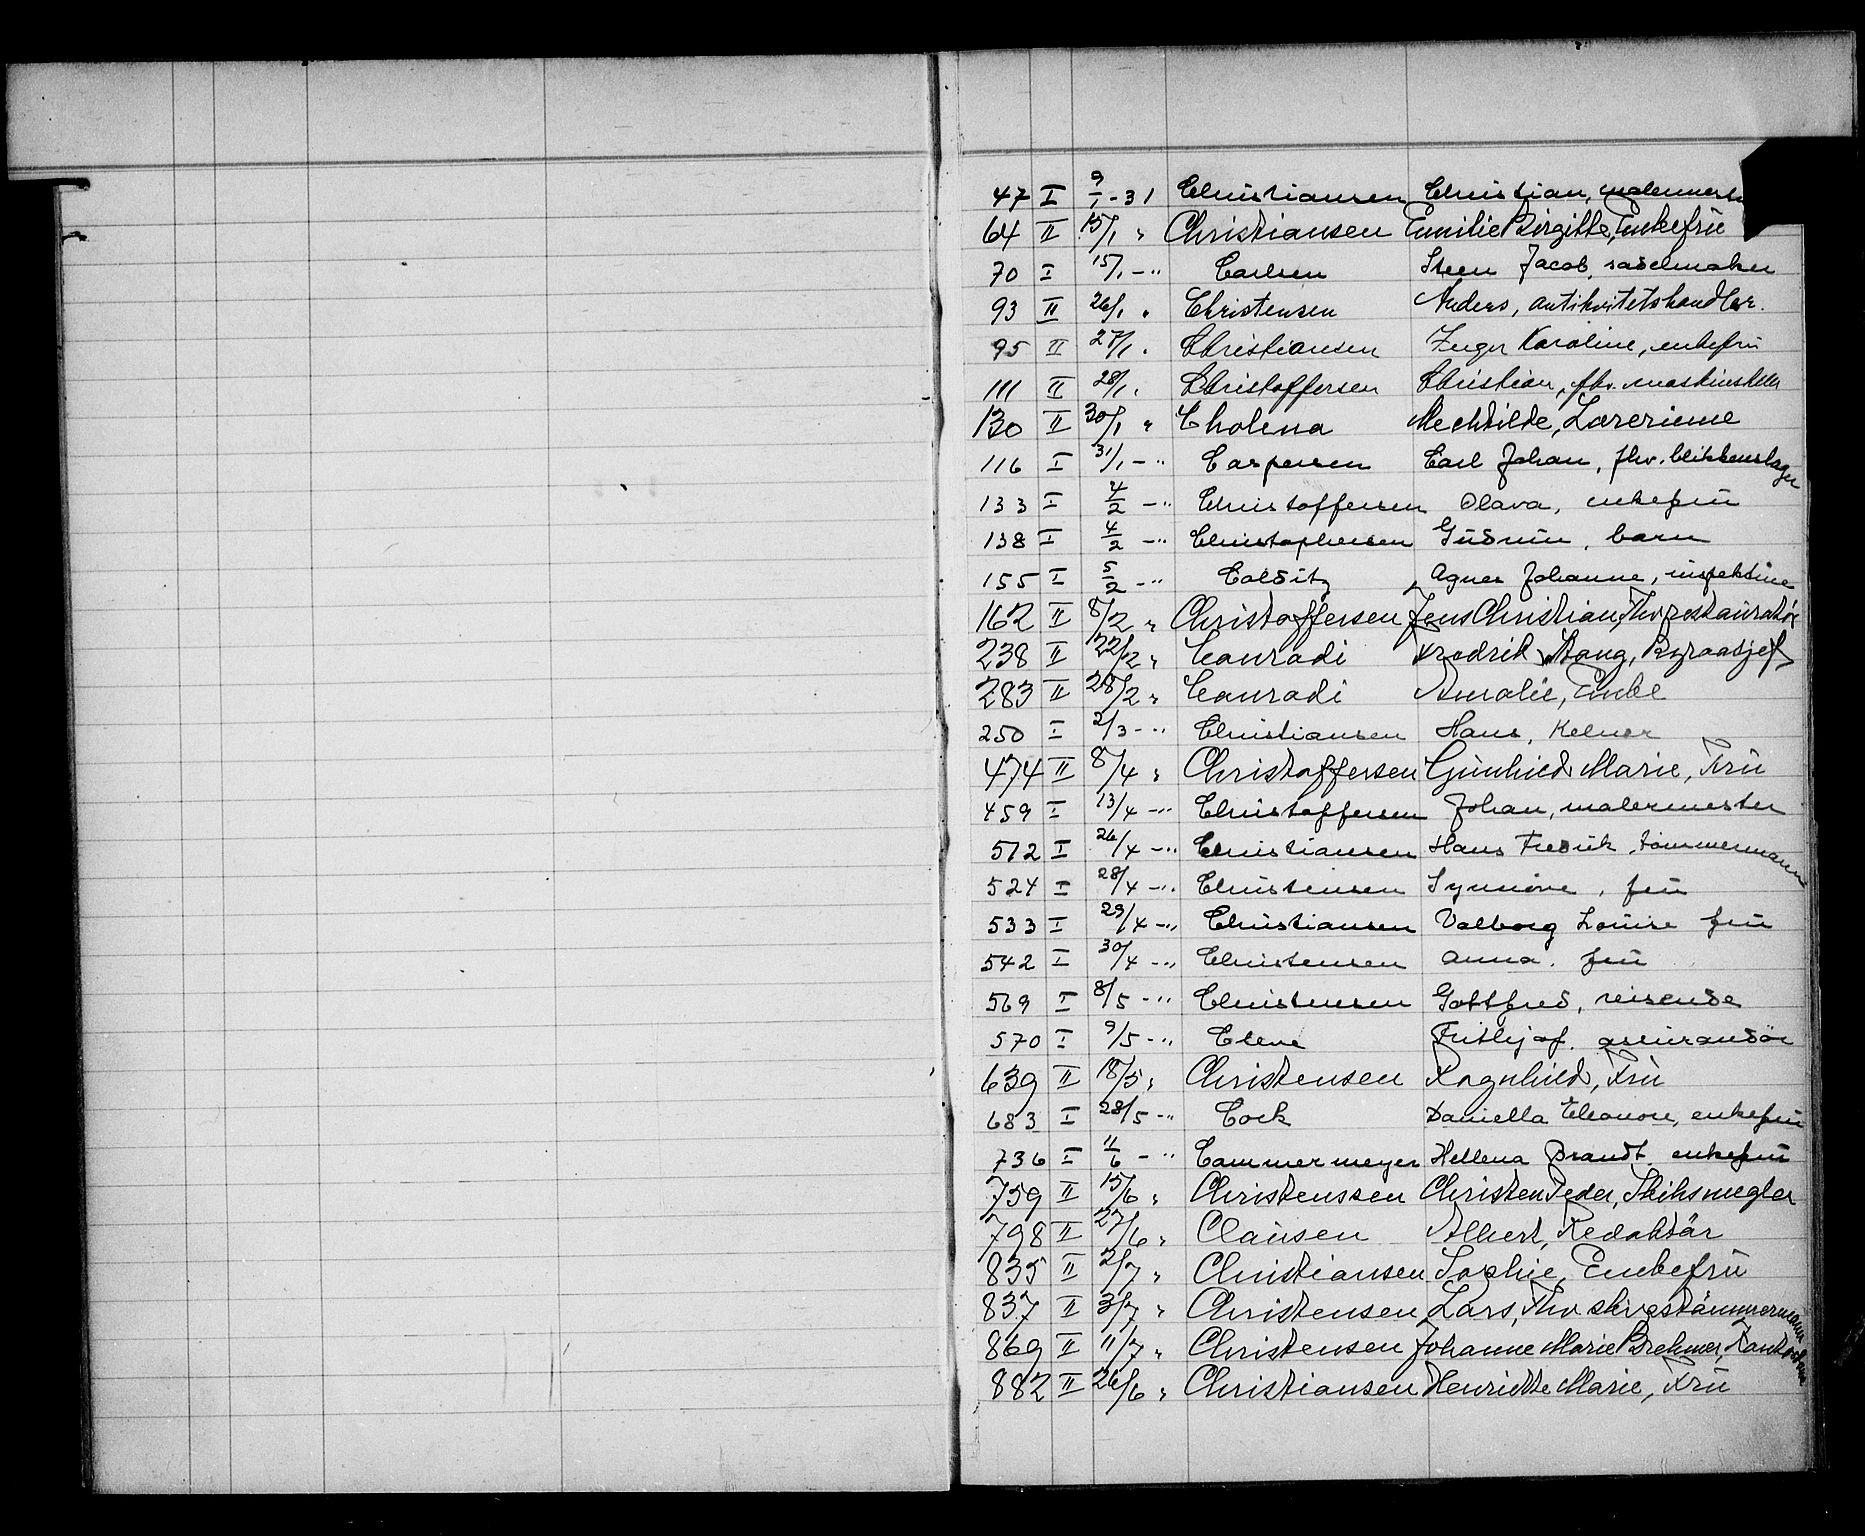 47 I 9/1-31 Christiansen Christian,
64 II 15/1 " Christiansen Emilie Birgitte, Enkefru
70 I 15/1 -" Carlsen Steen Jacob, sadelmaker
93 II 26/1 " Christensen Anders, antikvitetshandler.
95 II 27/1 " Christiansen Inger Karoline, enkefru
111 II 28/1 " Christoffersen Christian, fhv. maskinskr
130 II 30/1 " Cholena Mechtilde, Lærerinne
116 I 31/1 -" Caspersen Carl Johan, fhv. blikkenslager
133 I 4/2 -" Christoffersen Olava, enkefru
138 I 4/2 -" Christophersen Gudrun, barn
155 I 5/2 -" Colditz Agnes Johanne, inspektrise
162 II 8/2 " Christoffersen Jens Christian, Fhv restauratør
238 II 22/2 " Conradi Fredrik Stang, Byraasjef
283 II 28/2 " Conradi Amalie, Enke
250 I 2/3 -" Christiansen Hans, Kelner
474 II 8/4 " Christoffersen Gunhild Marie, Fru
459 I 13/4 -" Christoffersen Johan, malermester
512 I 26/4 -" Christiansen Hans Fredrik, tømmermann
524 I 28/4 -" Christensen Synnøve, fru
533 I 29/4 -" Christiansen Valborg Louise fru
542 I 30/4 -" Christensen Anna. fru
569 I 8/5 -" Christensen Gottfred, reisende
570 I 9/5 -" Clene Frithjof. assurandør
639 II 18/5 " Christensen Ragnhild, Fru
683 I 28/5 -" Cock Daniella Eleonore, enkefru
736 I 11/6 -" Cammermeyer Hellena Brandt. enkefru
759 II 15/6 " Christenssen Christen Peder, Skibsmegler
798 II 27/6 " Clausen Albert, Redaktør
835 II 2/7 " Christiansen Sophie, Enkefru
837 II 3/7 " Christensen Lars, Fhv skibstømmermann
869 II 11/7 " Christensen Johanne Marie Brehmer,
882 II 26/6 " Christiansen Henriette Marie, Fru